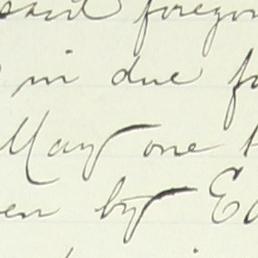 said foregoi
in due fo
May one t
en by Ed